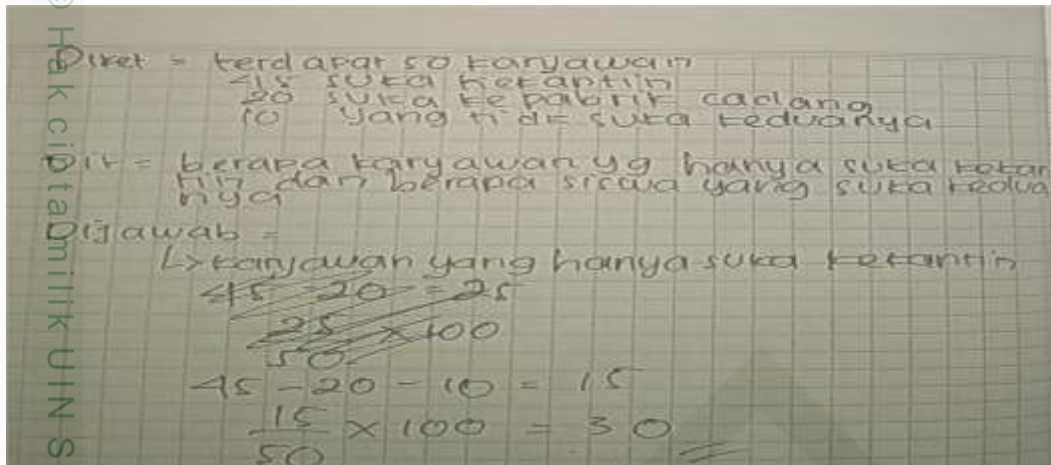 Diket = terdapat 50 karyawan
45 suka kekantin
20 suka ke pabrik cadang
10 yang tidk suka keduanya
Dit = berapa karyawan yg hanya suka kekan
tin dan berapa siswa yang suka kedua
nya
Dijawab =
↳ karyawan yang hanya suka kekantin
45 - 20 = 25
25 × 100
50
45 - 20 - 10 = 15
15 × 100 = 30
50
© Hak cipta milik UIN S